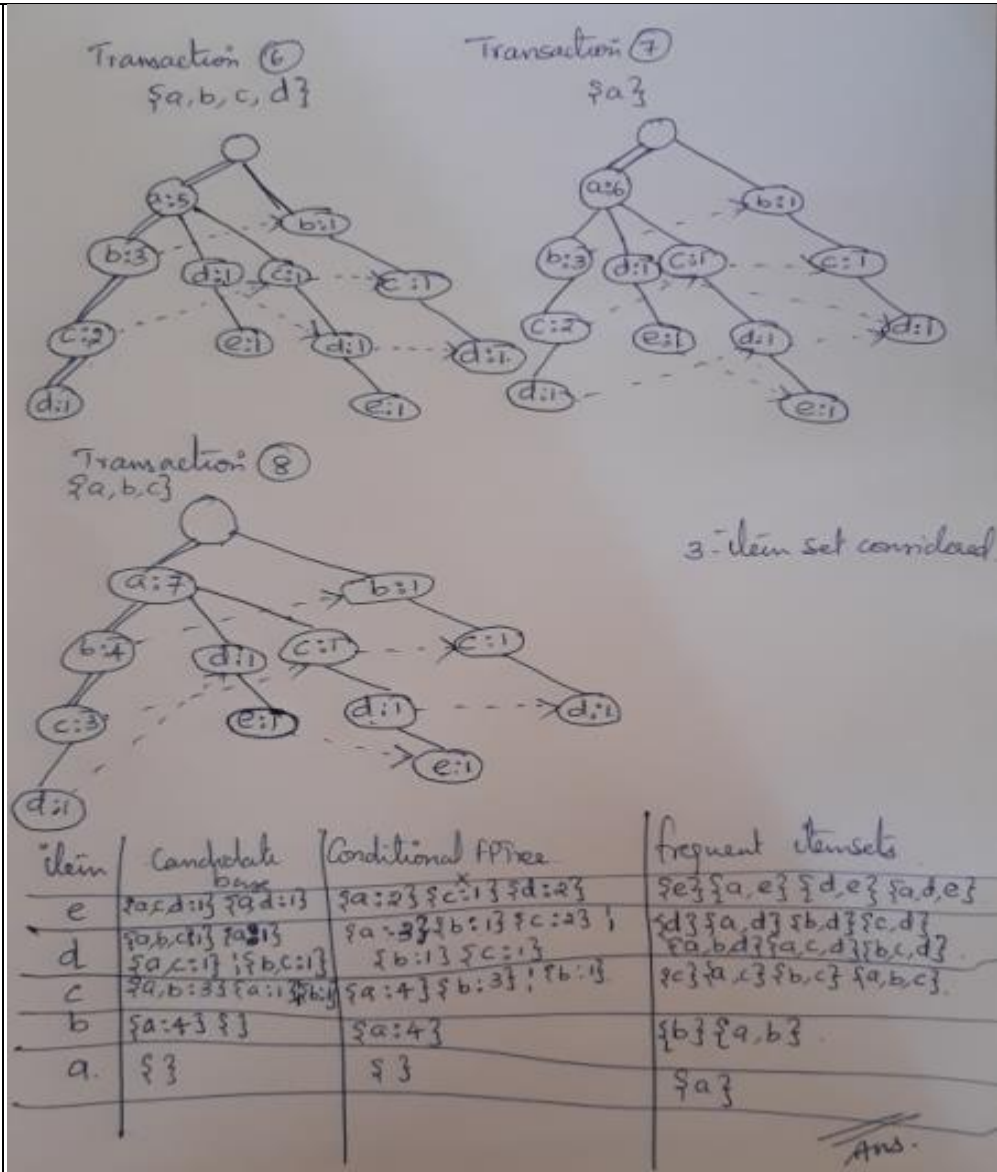 Transaction 6
{a,b,c,d}
a:5
b:1
b:3
d:1
c:1
c:1
c:2
e:1
d:1
d:1
d:1
e:1
Transaction 7
{a}
a:6
b:1
b:3
d:1
c:1
c:1
c:2
e:1
d:1
d:1
d:1
e:1
Transaction 8
{a,b,c}
3-item set considered
a:7
b:1
b:4
d:1
c:1
c:1
c:3
e:1
d:1
d:1
e:1
d:1
item | Candidate base | Conditional FPTree | frequent itemsets
e | {a,c,d:1} {a,d:1} | {a:2} {c:1} {d:2} | {e} {a,e} {d,e} {a,d,e}
x
d | {a,b,c:1} {a:1} | {a:3} {b:1} {c:2} ; | {d} {a,d} {b,d} {c,d}
{a,c:1} ; {b,c:1} | {b:1} {c:1} | {a,b,d} {a,c,d} {b,c,d}
c | {a,b:3} {a:1} {b:1} | {a:4} {b:3} ; {b:1} | {c} {a,c} {b,c} {a,b,c}
b | {a:4} { } | {a:4} | {b} {a,b}
a. | { } | { } | {a}
Ans.